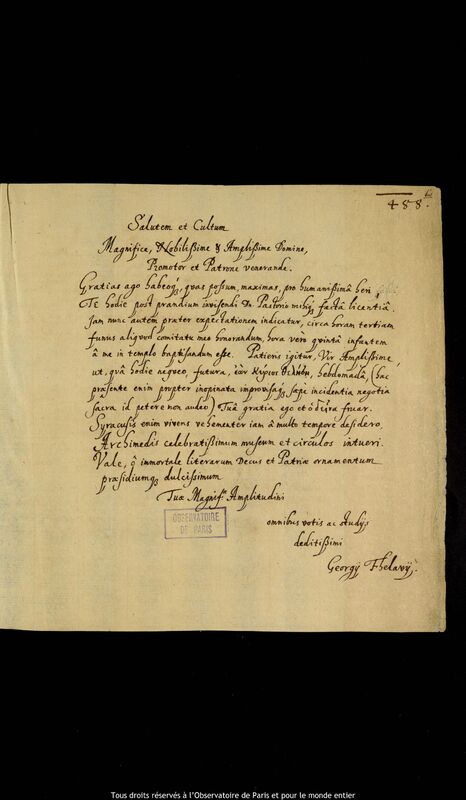 488.
Salutem et Cultum
Magnifice, Nobilißime & Amplißime Domine,
Promotor et Patrone venerande.
Gratias ago habeoq́;, quas poßum, maximas, pro humanißimâ heri
Te hodie post prandium invisendi Dn Pastorio mihiq́; factâ licentiâ.
Jam nunc autem præter expectationem indicatur, circa horam tertiam
funus aliquod comitatu meo honorandum, hora vero quintâ infantem
â me in templo baptisandum eße. Patieris igitur, Vir Amplißime,
ut, quâ hodie nequeo, futura, ἐὰν κύριος θελήσῃ, hebdomadâ, (hac
præsente enim propter inopinata improvisaq́; sæpe incidentia negotia
sacra id petere non audeo) Tuâ gratia ego et ὁ δεῖνα fruar.
Syracusis enim vivens vehementer iam â multo tempore desidero,
Archimedis celebratißimum museum et circulos intueri.
Vale, ô immortale literarum Decus et Patriæ ornamentum
præsidiumq́; dulcißimum
Tuæ Magnif. Amplitudini
OBSERVATOIRE
DE PARIS
omnibus votis ac studijs
deditißimi
Georgij Fhelavij.
Tous droits réservés à l'Observatoire de Paris et pour le monde entier